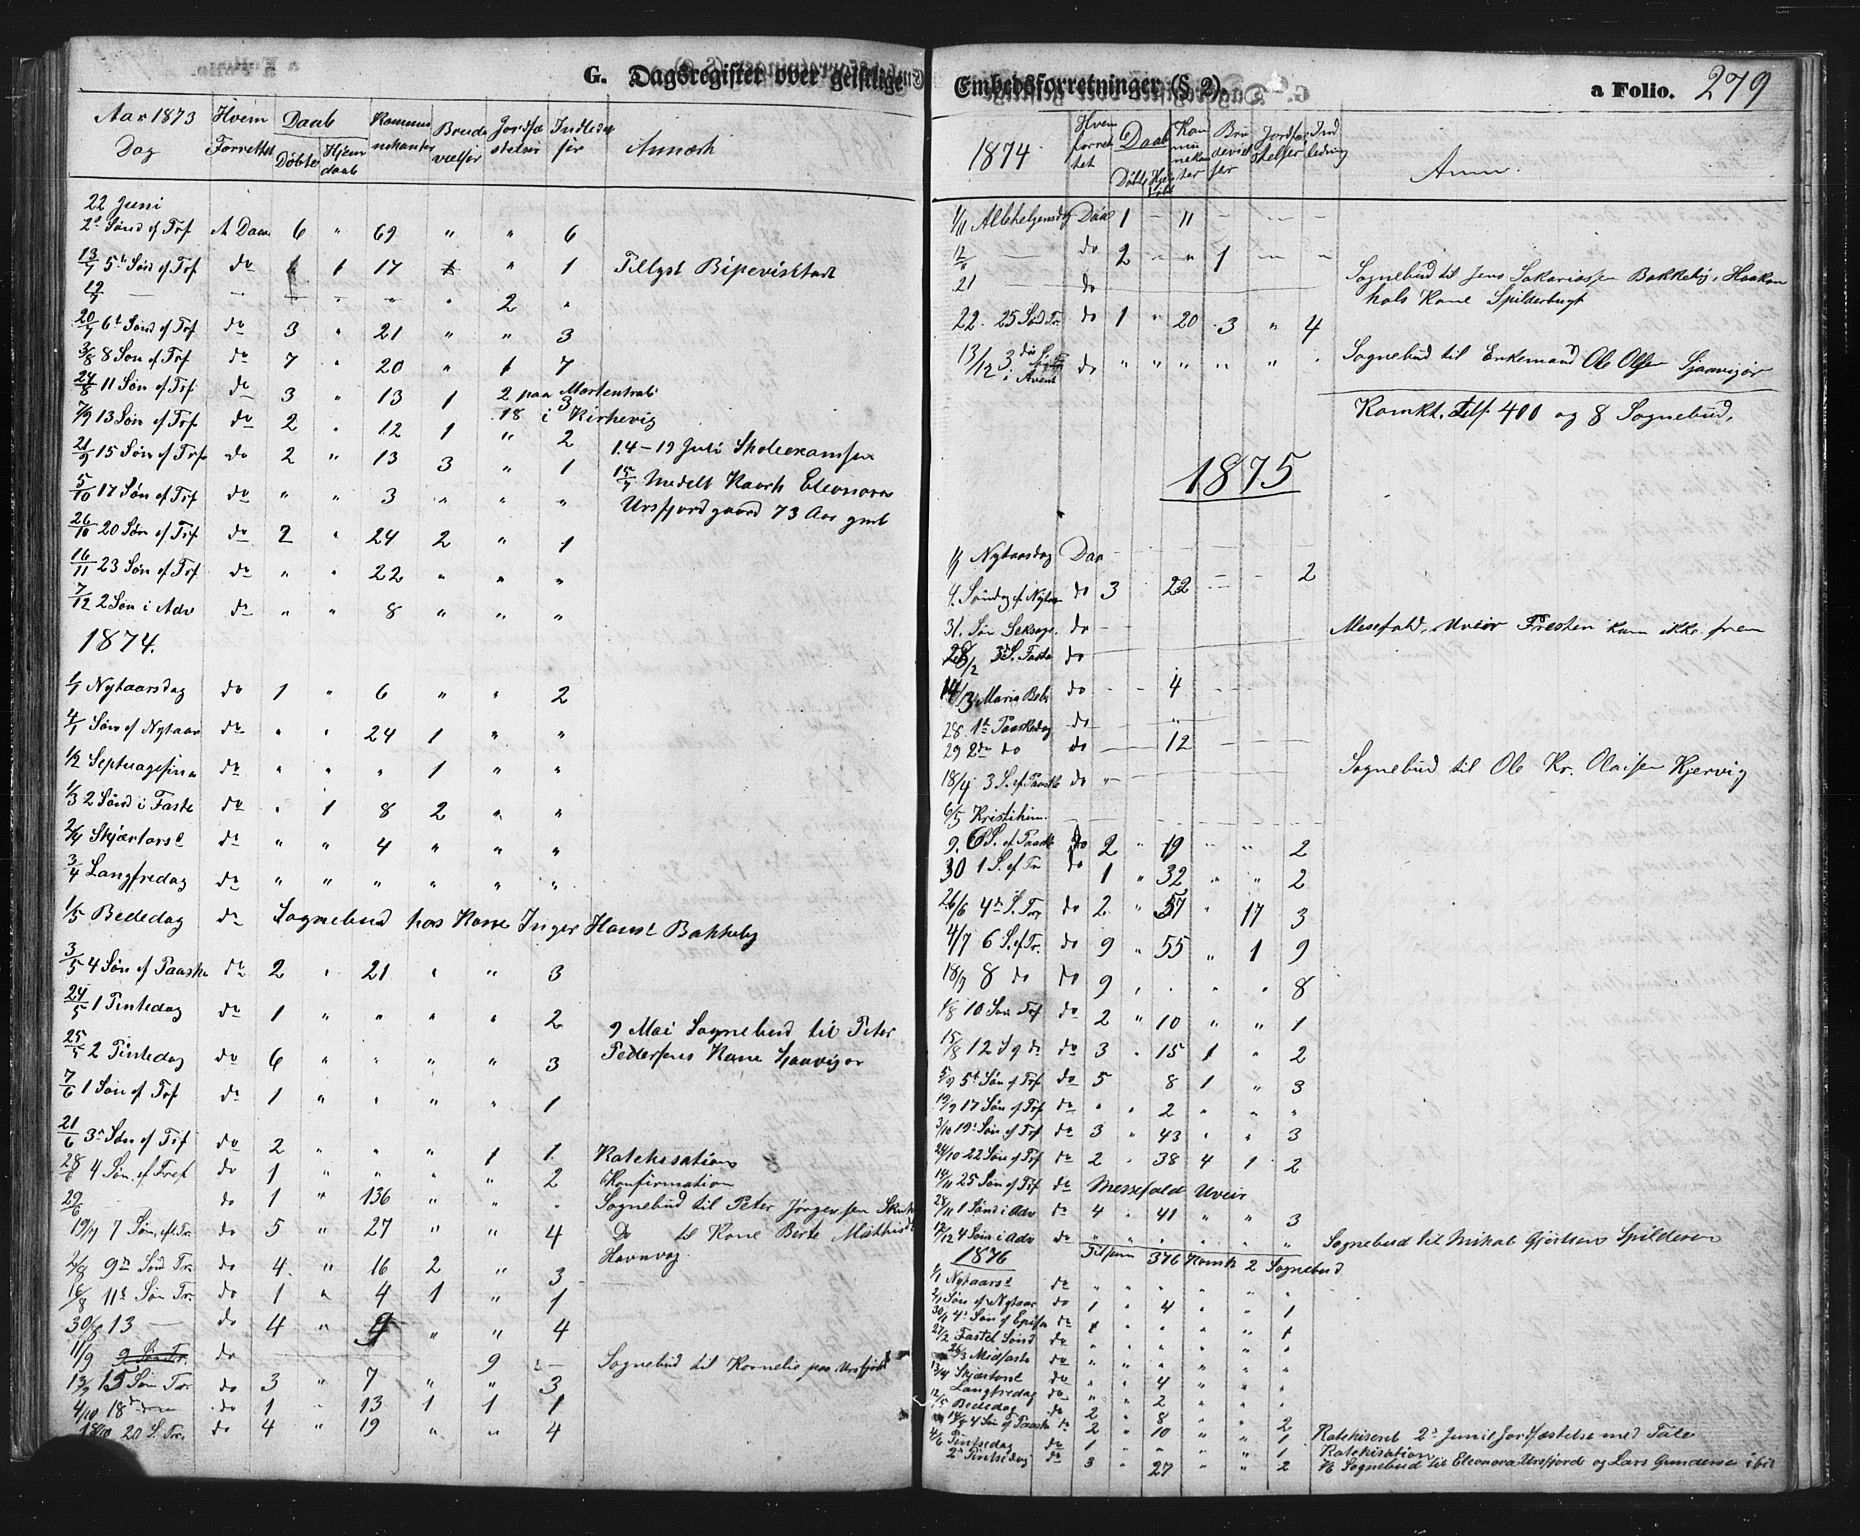 G. Dagsregister over geistlige
Aar 1873 Hvem Daab Kommu Brude Jordfæ Indlede Anmærk
Dag Forrettet Døbte Hjem nikanter vielser stelser ser
daab
22 Juni
2d Sönd ef Trf A Daae 6 " 69 " " 6
13/7 5te Sönd ef Trf do 1 17 " 1 Tillyst Bispevisitats
19/7 — — " " 2 "
20/7 6t Sönd ef Trf do 3 " 21 " " 3
3/8 8 Søn ef Trf do 7 " 20 " 1 7
24/8 11 Søn ef Trf do 3 " 13 1 2 paa 3
7/9 13 Søn ef Trf do 2 " 12 1 18 i Kirkevig
21/9 15 Søn ef Trf do 2 " 13 3 " 1 14–19 Juli Skoleexamen
5/10 17 Søn ef Trf do " " 3 " " " 15/7 Eleonora
Ursfjord gaard 73 Aar gml
26/10 20 Søn ef Trf do 2 " 24 2 " 1
16/11 23 Søn ef Trf do " " 22 " " "
7/12 2 Søn i Adv do " " 8 " " "
1874.
1/1 Nytaarsdag do 1 " 6 " " 2
4/1 Søn ef Nytaar do " " 24 1 " "
1/2 Septuagesima do " " " 1 " "
1/3 2 Sönd i Faste do " 1 8 2 " "
2/4 Skjærtorsd do " " 4 " " "
3/4 Langfredag do " " " " " "
1/5 Bededag do Sognebud hos Kone Inger Hansd Bakkeby
3/5 4 Søn ef Paaske do 2 " 21 " " 3
24/5 1 Pintsedag do 1 " " " " 2
9 Mai Sognebud til Peter
25/5 2 Pintsedag do 6 " " " " 3 Pedersens Kone Sjaavigør
7/6 1 Søn ef Trf do 1 " " " " 1
21/6 3d Søn ef Trf do 2 " " " 1 1 Katekisation
28/6 4 Søn. ef Tref do 1 " " " " 2 Konfirmation
29/6 do 1 " 136 " " " Sognebud til Peter Jørgensen
19/7 7 Søn. ef. Tr. do 5 " 27 " " 4 Do til Kone Berte Mathisd
Havnvag.
2/8 9de Sönd Tr. do 4 " 16 2 " 3
16/8 11te Søn Tr. do 1 " 4 1 " 1
30/8 13 — do 4 " 4 " " 4
11/9 9 Søn Tr. do 9 — Sognebud til Kornelia paa Ursfjord
13/9 15 Søn Tr. do 3 " 7 " " 3
4/10 18de do 1 " 13 1 1 1
18/10 20 S. Tr. do 4 " 19 " " 4
Embedsforretninger (§ 2). a Folio. 279
1874 Hvem Daab Kom Bru Jordfæ Ind Anm.
forret mu devid stelser ledning
tet Døbte Hje nikan ser
daab ter
1/11 Allehelgensdag Daae 1 – 11 – – –
12/11 — do 2 " " 1 – "
21 — do Sognebud til Jens Sakariassen Bakkeby, Haakon
hols Kone Spilderbugt
22. 25 Sönd Tr. do 1 " 20 3 " 4
13/12 3. i Avent do " " " " " " Sognebud til Enkemand Ole Olsen Sjaavigør
Komkt. Tils. 400 og 8 Sognebud.
1875
1/1 Nytaarsdag Daa
4. Søndag ef Nytaar do 3 22 – – 2
31. Søn Seksage. do – Messefald, Uveir Presten kom ikke frem
28/2 3d S. Faste do
14/3 Maria Beb. do – – 4
28. 1te Paaskedag do – "
29 2den do do – 12
18/4 3 S. ef Paaske do " Sognebud til Ole Kr. Olaisen Kjervig
6/5 Kristihim.
9. 6 S. ef Paaske do 2 " 19 " " 2
30 1 S. ef Tr do 1 " 32 " " 2
26/6 4de S. Tr. do 2 " 37 " 17 3
4/7 6 S. ef Tr. do 9 " 55 " 1 9
18/7 8 do do 9 " " " " 8
1/8 10 Søn Trf do 2 " 10 " " 1
15/8 12 S do 3 " 15 1 " 2
5/9 5t Søn ef Trf do 5 8 1 " 3
19/9 17 Søn ef Trf do " " 2 " " "
3/10 19d Søn ef Trf do 3 " 43 " " 3
24/10 22 Søn ef Trf do 2 " 38 4 1 2
14/11 25 Søn ef Trf do Messefald Uveir
28/11 1 Sønd i Adv do 4 " 41 " " 3
12/12 4 Søn i Adv do " " " " " " Sognebud til Mikal Gjertsens Spilderen
1876 Tilsam 376 Komk 2 Sognebud
1/1 Nytaarsd do " " " " " "
2/1 Søn ef Nytaar do 1 " 4 " " 1
30/1 4d Søn ef Epifa do 1 " " " " 1
27/2 Fastel Sönd do " " " " " "
26/3 Midfaste do " " " " " "
13/4 Skjærtorsd do " " 4 " " "
Langfredag do " " 2 " " "
12/5 Bededag do 2 " 8 " " 2
14/5 4 Søn ef Paaske do 2 " 10 " " 1 Katekiseret 2d Juni Jordfæstelse med Tale
4/6 Pintsedag do 1 " " " " 1 Katekisation
2d Pintsedag do 3 " 27 " " 2 Sognebud til Eleonora Ursfjord og Lars Gundersen ibid